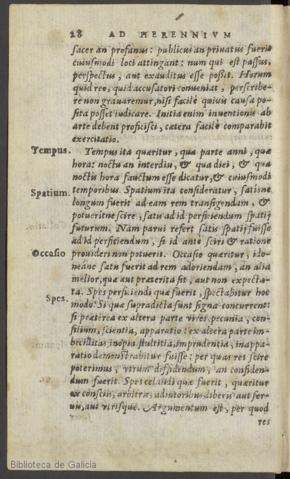 28 AD HERENNIVM
sacer an profanus: publicus an priuatus fuerit
cuiusmodi loci attingant: num qui est passus,
perspectus, aut exauditus esse possit. Horum
quid reo, quid accusatori conueniat, perscribe-
re non grauaremur, nisi facile quiuis causa po-
sita posset iudicare. Initia enim inuentionis ab
arte debent proficisci, cætera facilè comparabit
exercitatio.
Tempus. Tempus ita quæritur, qua parte anni, qua
hora: noctu an interdiu, & qua diei, & qua
noctis hora factum esse dicatur, & cuiusmodi
Spatium. temporibus. Spatium ita consideratur, satisne
longum fuerit ad eam rem transigendam, &
potueritne scire, satis id perficiendum spatij
futurum. Nam parui refert satis spatij fuisse
ad id perficiendum, si id ante sciri & ratione
Occasio prouideri non potuerit. Occasio quæritur, ido-
neáne satis fuerit ad rem adoriendam, an alia
melior, quæ aut præterita sit, aut non expecta-
Spes. ta. Spes perficiendi quæ fuerit, spectabitur hoc
modo: Si quæ supradicta sunt signa concurrent:
si præterea ex altera parte vires, pecunia, con-
silium, scientia, apparatio: ex altera parte im-
becillitas, inopia, stultitia, imprudentia, inappa-
ratio demonstrabitur fuisse: per quas res scire
poterimus, vtrum diffidendum, an confiden-
dum fuerit. Spes celandi quæ fuerit, quæritur
ex consciis, arbitris, adiutoribus, liberis aut ser-
uis, aut vtrisque. Argumentum est, per quod
res
Biblioteca de Galicia